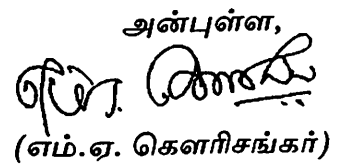 அன்புள்ள,
(எம்.ஏ. கௌரிசங்கர்)